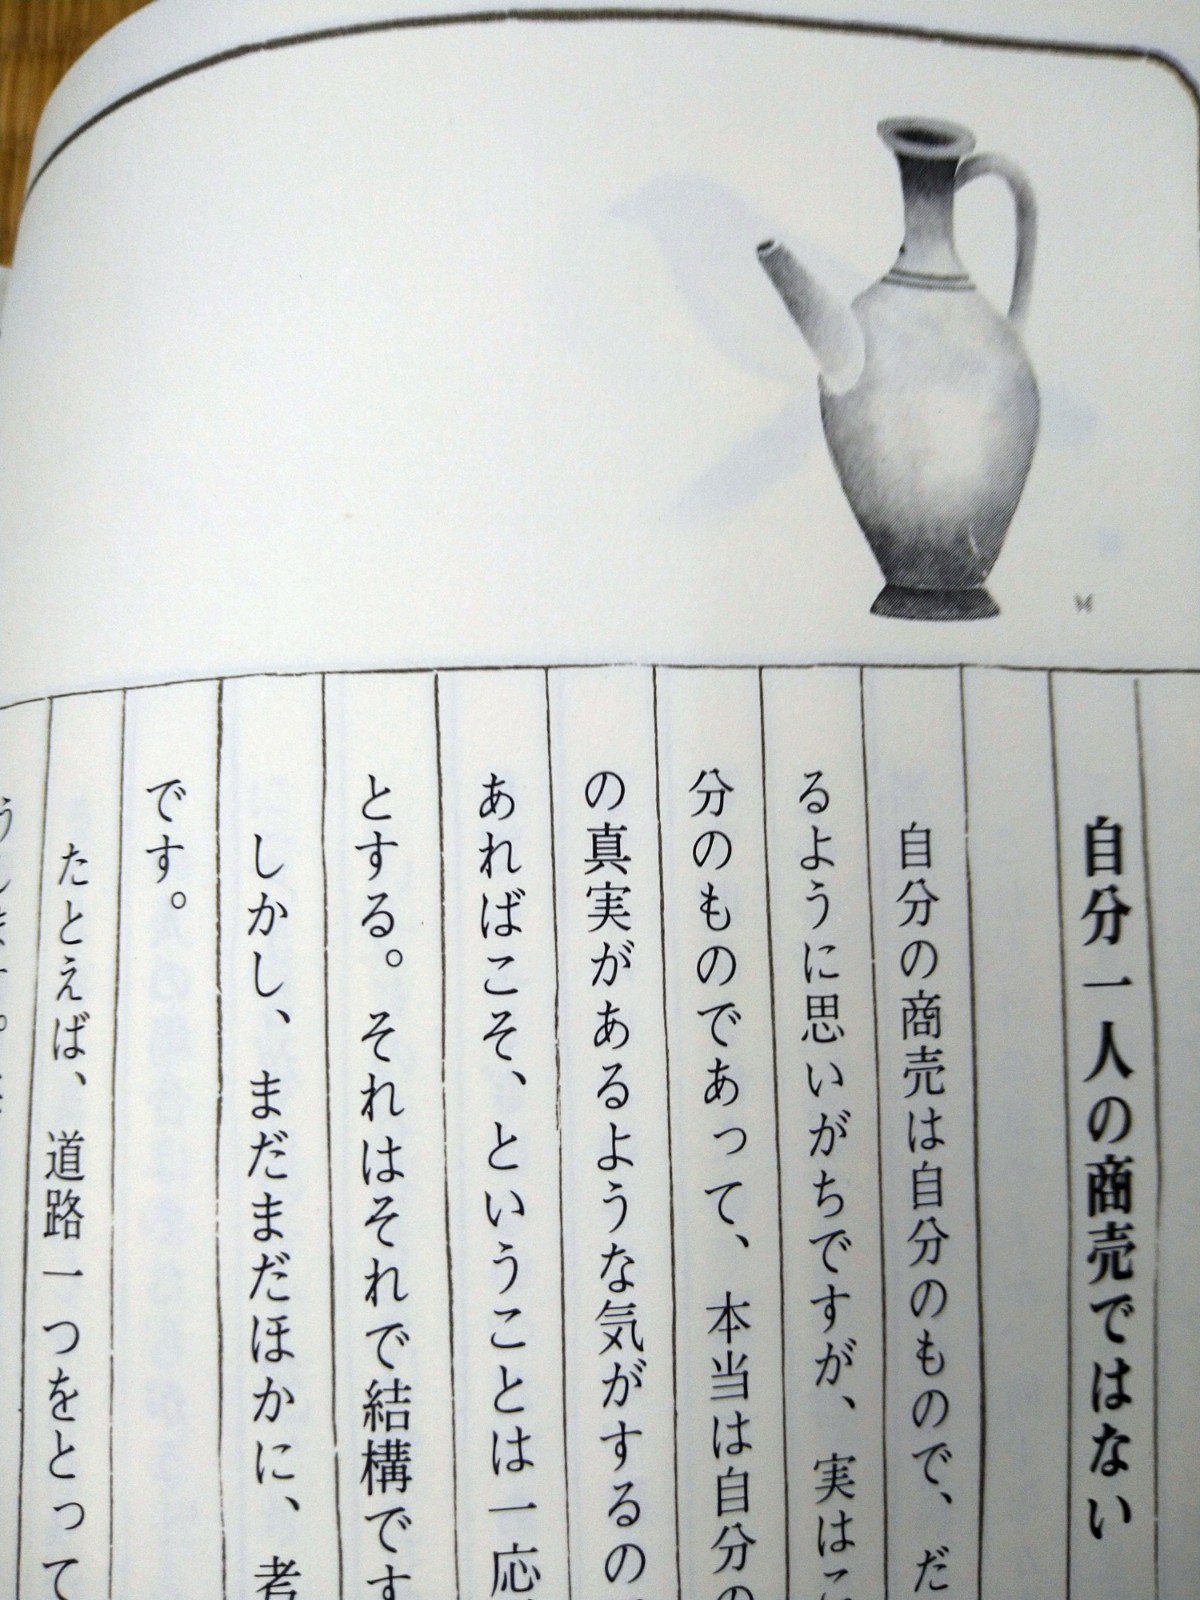 自分一人の商売ではない
自分の商売は自分のもので、だ
るように思いがちですが、実はこ
分のものであって、本当は自分の
の真実があるような気がするの
あればこそ、ということは一応
とする。それはそれで結構です
しかし、まだまだほかに、考
です。
たとえば、道路一つをとって